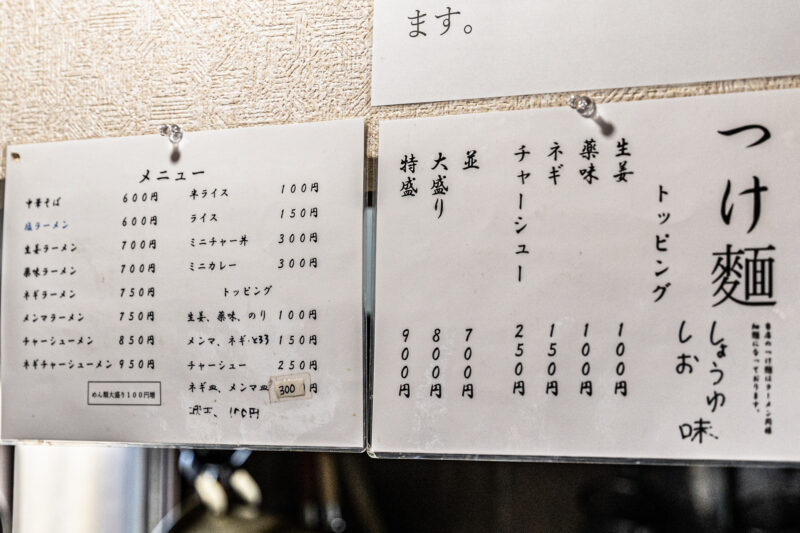 ます。
メニュー
中華そば 600円
塩ラーメン 600円
生姜ラーメン 700円
薬味ラーメン 700円
ネギラーメン 750円
メンマラーメン 750円
チャーシューメン 850円
ネギチャーシューメン 950円
めん類大盛り100円増
半ライス 100円
ライス 150円
ミニチャー丼 300円
ミニカレー 300円
トッピング
生姜、薬味、のり 100円
メンマ、ネギ・とろろ 150円
チャーシュー 250円
ネギ皿、メンマ皿 300円
100円
つけ麺
当店のつけ麺はラーメン同様
細麺になっております。
しょうゆ味
しお
トッピング
生姜 100円
薬味 100円
ネギ 150円
チャーシュー 250円
並 700円
大盛り 800円
特盛 900円